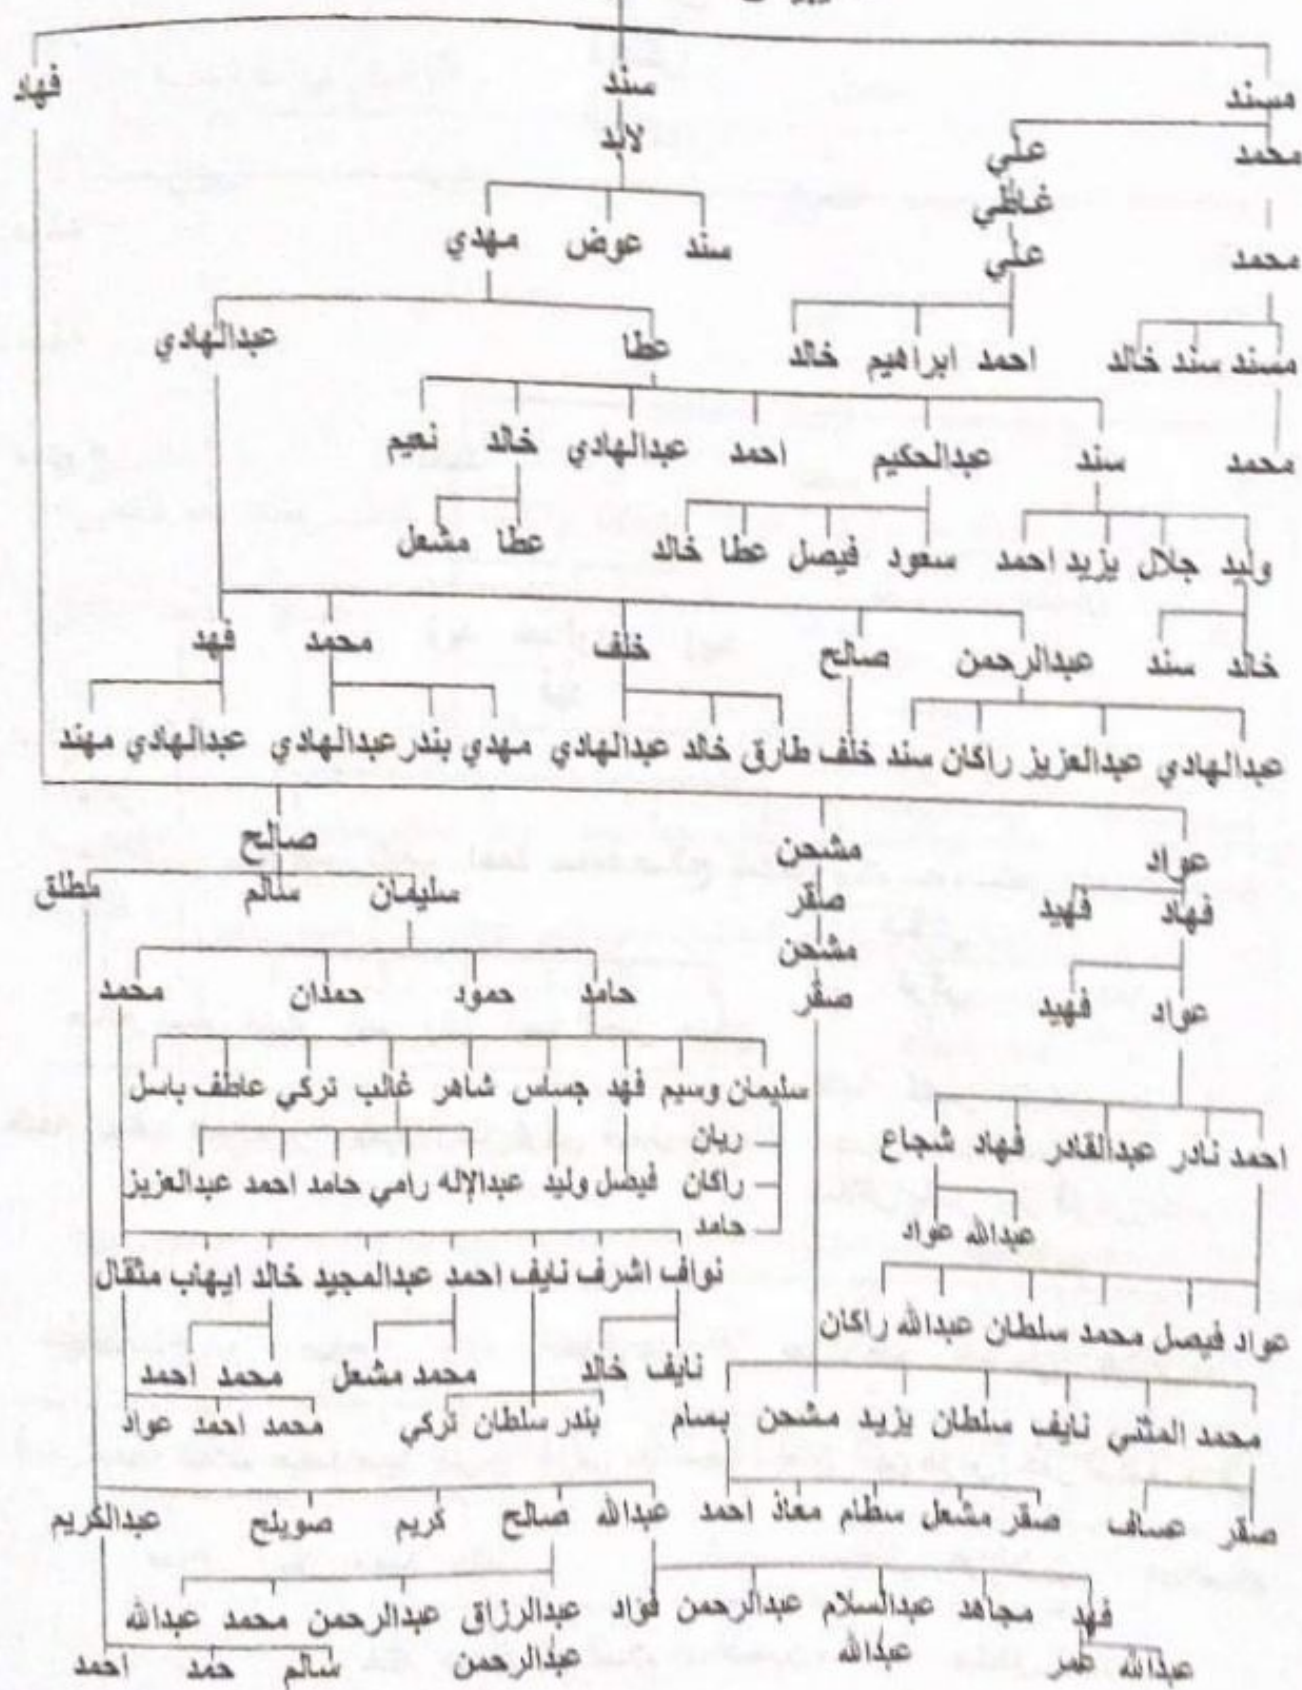 مسند سند فهاد
محمد علي لابد
غاطي
محمد علي سند عوض مهدي
مسند سند خالد احمد ابراهيم خالد عطا عبدالهادي
محمد سند عبدالحكيم احمد عبدالهادي خالد نعيم
وليد جلال يزيد احمد سعود فيصل عطا خالد عطا مشعل
خالد سند عبدالرحمن صالح خلف محمد فهد
عبدالهادي عبدالعزيز راكان سند خلف طارق خالد عبدالهادي مهدي بندر عبدالهادي عبدالهادي مهند
عواد مشحن صالح
فهاد فهيد صقر سليمان سالم مطلق
مشحن
عواد فهيد صقر حامد حمود حمدان محمد
سليمان وسيم فهد جساس شاهر غالب تركي عاطف باسل
احمد نادر عبدالقادر فهاد شجاع ريان
راكان فيصل وليد عبدالإله رامي حامد احمد عبدالعزيز
عبدالله عواد حامد
نواف اشرف نايف احمد عبدالمجيد خالد ايهاب مثقال
عواد فيصل محمد سلطان عبدالله راكان
نايف خالد محمد مشعل محمد احمد
محمد المثني نايف سلطان يزيد مشحن بسام بندر سلطان تركي محمد احمد عواد
صقر عساف صقر مشعل سطام معاذ احمد عبدالله صالح كريم صويلح عبدالكريم
فهد مجاهد عبدالسلام عبدالرحمن فؤاد عبدالرزاق عبدالرحمن محمد عبدالله
عبدالله عمر عبدالله عبدالرحمن سالم حمد احمد